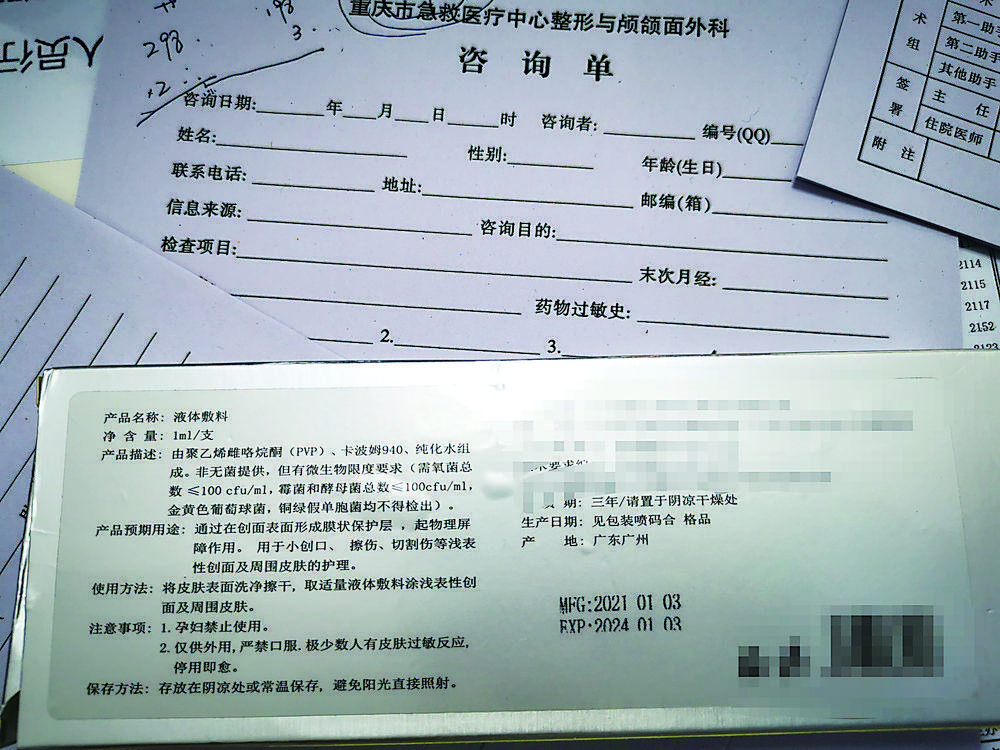 298
198
3
×2
人员行
重庆市急救医疗中心整形与颅颌面外科
咨询单
咨询日期:____年___月___日____时 咨询者:________ 编号(QQ)
姓名: 性别: 年龄(生日)
联系电话: 地址: 邮编(箱)
信息来源: 咨询目的:
检查项目: 末次月经:
药物过敏史:
2. 3.
术 第一助手
组 第二助手
其他助手
签 主 任
署 住院医师
附 注
2114
2115
2117
2152
2123
产品名称: 液体敷料
净 含 量: 1ml/支
产品描述: 由聚乙烯雌咯烷酮（PVP）、卡波姆940、纯化水组
成。非无菌提供，但有微生物限度要求（需氧菌总
数 ≤100 cfu/ml，霉菌和酵母菌总数≤100cfu/ml，
金黄色葡萄球菌，铜绿假单胞菌均不得检出）。
产品预期用途: 通过在创面表面形成膜状保护层 ，起物理屏
障作用。 用于小创口、 擦伤、切割伤等浅表
性创面及周围皮肤的护理。
使用方法: 将皮肤表面洗净擦干，取适量液体敷料涂浅表性创
面及周围皮肤。
注意事项: 1. 孕妇禁止使用。
2. 仅供外用, 严禁口服. 极少数人有皮肤过敏反应,
停用即愈。
保存方法: 存放在阴凉处或常温保存，避免阳光直接照射。
期: 三年/请置于阴凉干燥处
生产日期: 见包装喷码合 格品
产 地: 广东广州
MFG:2021 01 03
EXP:2024 01 03